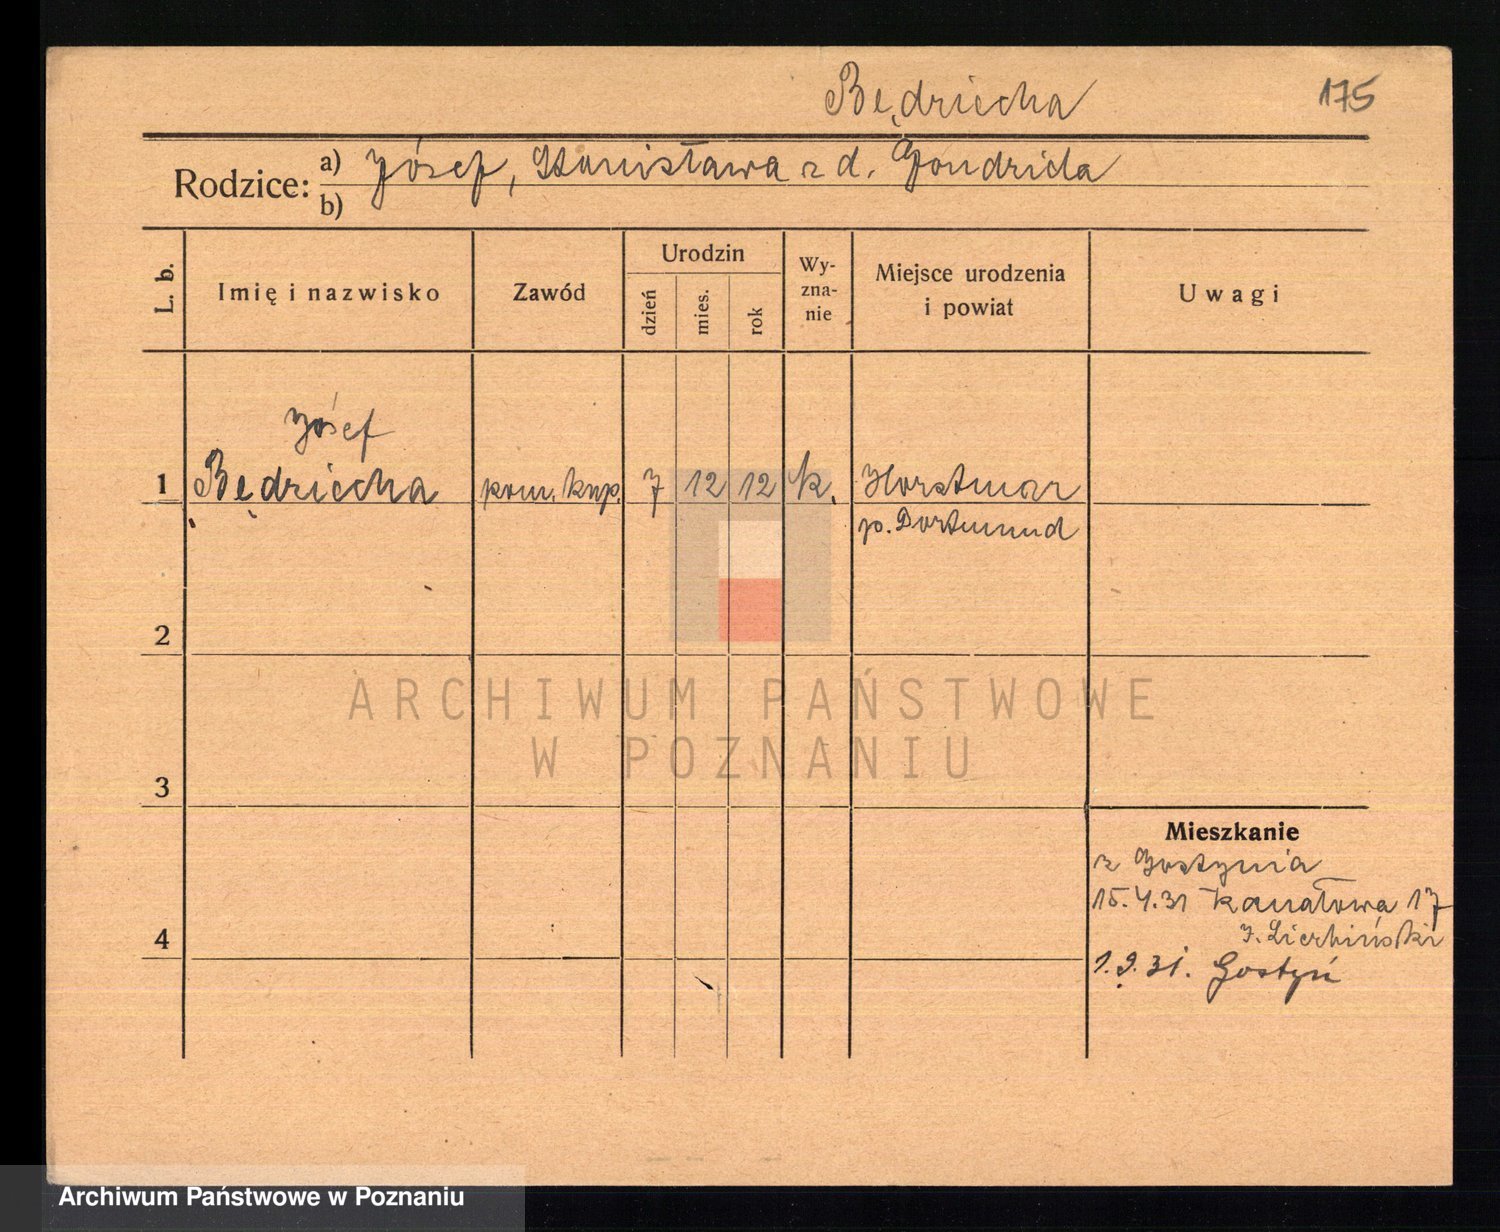 Będziecha 175
Rodzice: a) Józef, Stanisława z d.
b)
L. b. Imię i nazwisko Zawód Urodzin dzień mies. rok Wyznanie Miejsce urodzenia i powiat Uwagi
Józef
1 Będziecha pom. kup. 7 12 12 k. Horstmar
p. Dortmund
2
ARCHIWUM PAŃSTWOWE
W POZNANIU
3
Mieszkanie
z Gostynia
15.4.31 Kanałowa 17
4
1.9.31. Gostyń
Archiwum Państwowe w Poznaniu